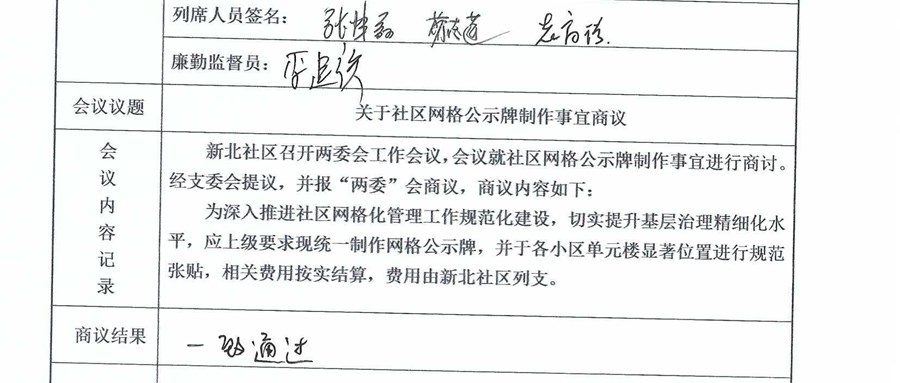 列席人员签名：
廉勤监督员：
会议议题 关于社区网格公示牌制作事宜商议
会议内容记录
新北社区召开两委会工作会议，会议就社区网格公示牌制作事宜进行商讨。
经支委会提议，并报“两委”会商议，商议内容如下：
为深入推进社区网格化管理工作规范化建设，切实提升基层治理精细化水
平，应上级要求现统一制作网格公示牌，并于各小区单元楼显著位置进行规范
张贴，相关费用按实结算，费用由新北社区列支。
商议结果 一致通过